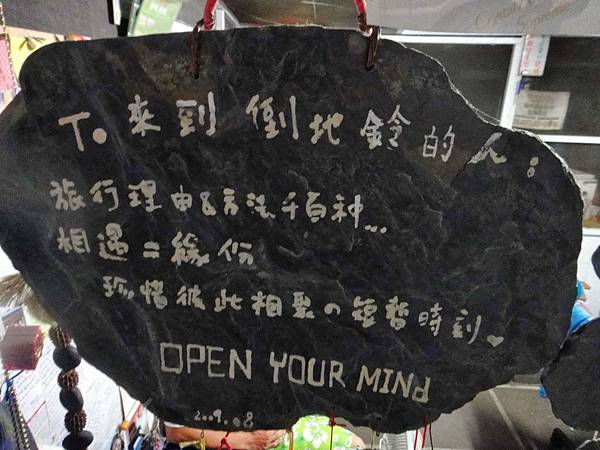 To 來到 倒地鈴的人：
旅行理由&方法千百种...
相遇=緣份
珍惜彼此相聚の短暫時刻
OPEN YOUR MINd
2009.08